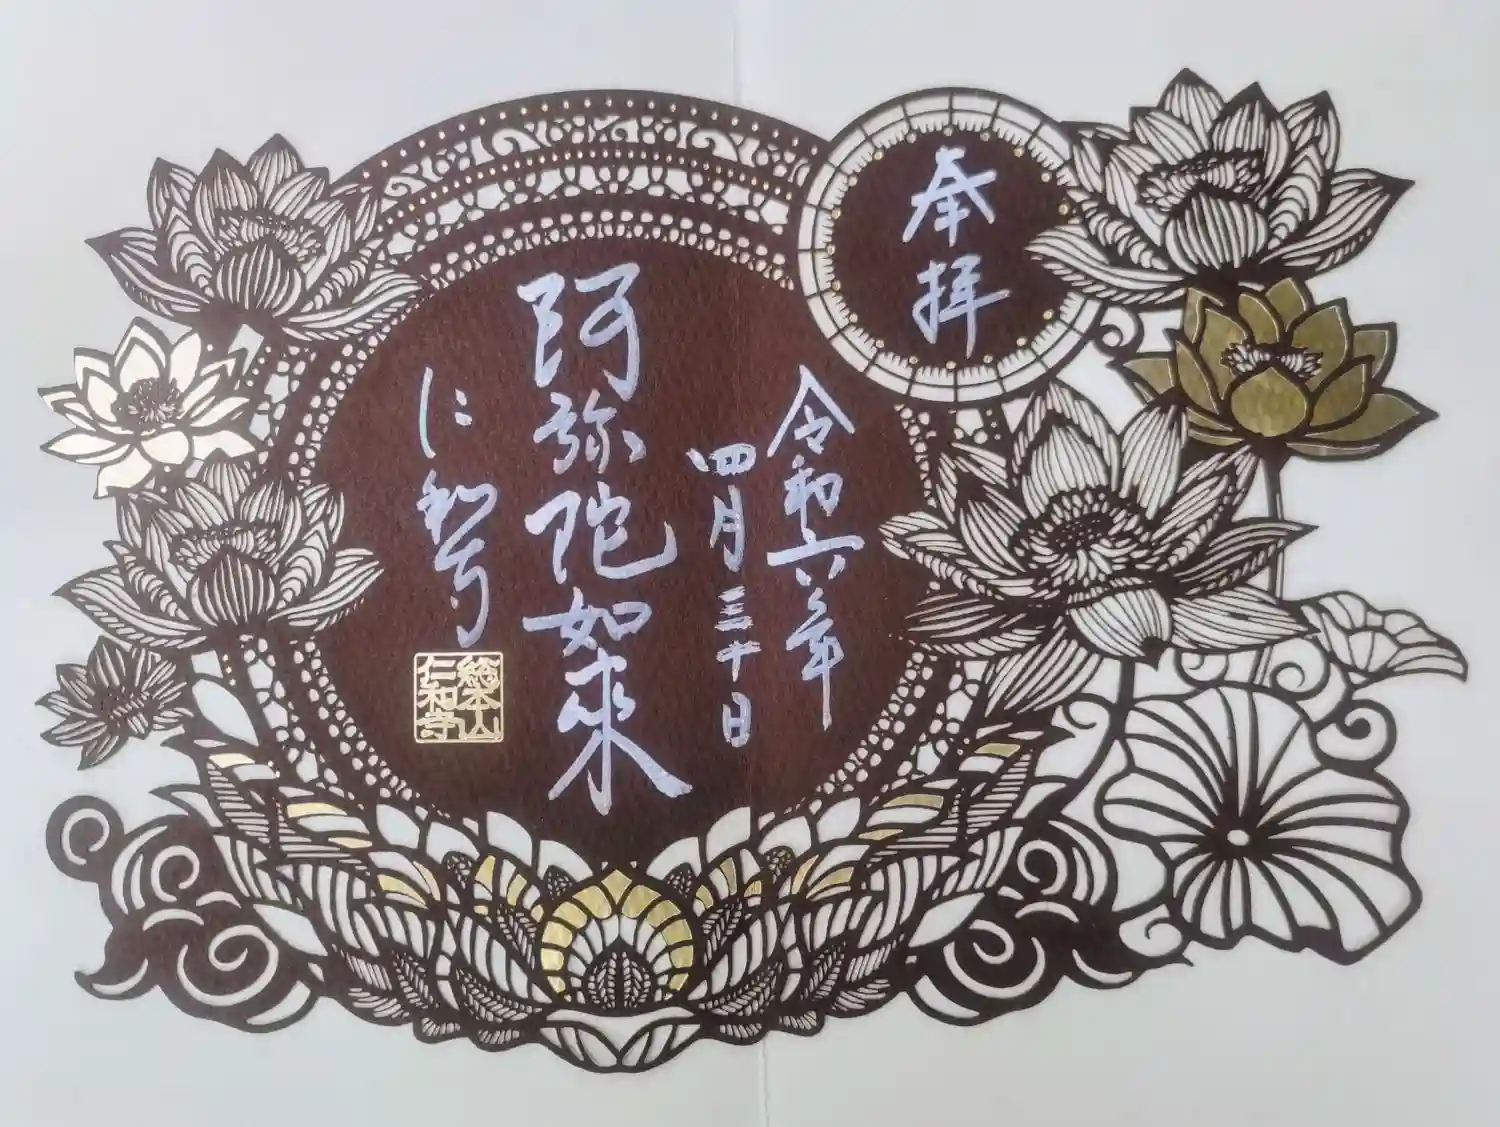 奉拝
令和六年
四月三十日
阿弥陀如来
仁和寺
総本山
仁和寺